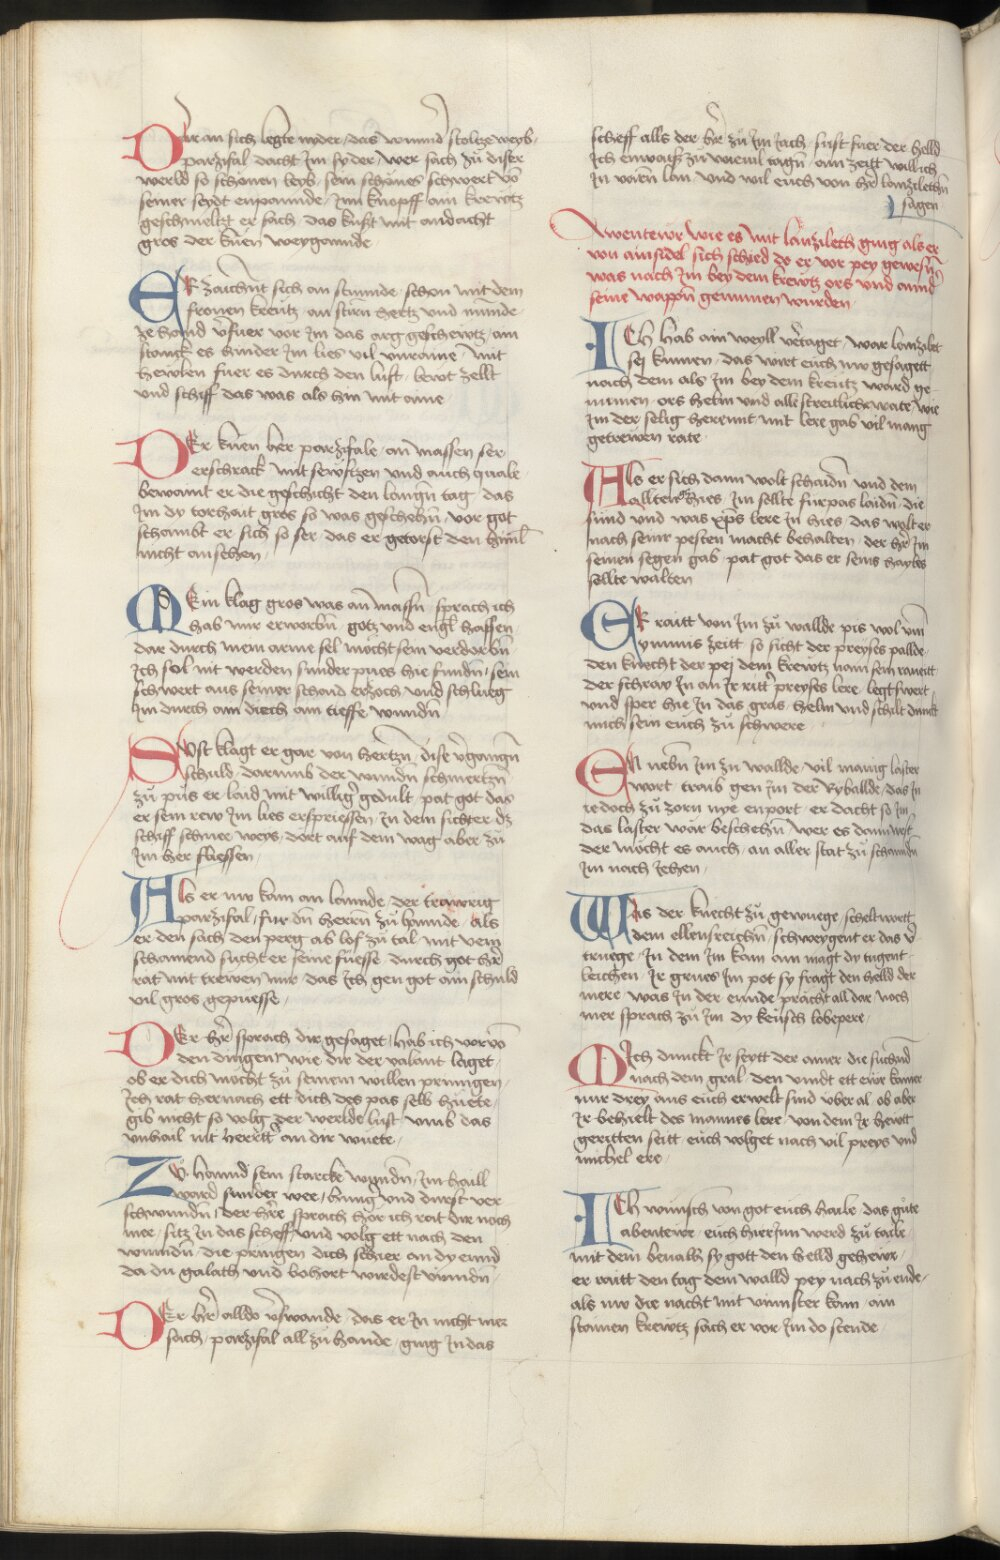 Dar an sich legte nyder das wunnd stoltze weyb
parzifal dacht Im sy der wer sach zu diser
werld so schonen leyb sein schones schwert von
seiner seydt enpannde Inn knopff am krewtz
geschmeltzt er sach das kust mit andacht
gros der kuen weygannde
ER zaichnt sich an stunde schon mit dem
fronen kreutz an stirn hertz und munde
ze hannd v̄fuer vor Im das arg geschewtz ain
stanck es hinder Im lies vil unraine mit
hewlen fuer es durch den lufft bewt zellt
und schiff das was als hin mit aine
DEr kuen her parzifale an massen ser
erschrack mit sewftzen und auch quale
bewaint er die geschicht den langn tag das
Im dy torhait gros so was geschehn vor got
schambt er sich so ser das er getorst den himl
nicht ansehen
MEin klag gros was an massn sprach ich
hab mir erworbn gotz und engl hassen
dar durch mein arme sel mocht sein verdorbn
Ich sol nit werden sunder pues hie fundn sein
schwert aus seiner schaid erzoch und schlueg
Im durch ain diech ain tieffe wundn
SUst klagt er gar von hertzn dise v̄gangn
schuld darumb der wundn schmertzn
zu pus er laid mit willigr gedult pat got das
er sein rew Im lies erspriessen In dem sichter dz
schiff schnee weys dort auf dem wag aber zu
Im her fliessen
Als er nw kam an lannde der trawrig
parzifal fur dn herrn zu hannde als
er den sach den perg ab lof zu tal mit vem
schamend sucht er seine fuesse durch got hr̄
rat mit trewen mir das Ich gen got ain schuld
vil gros gepuesse
DEr hr̄ sprach dir gesaget hab ich vor von
den dingen wie dir der valant laget
ob er dich mocht zu seinem willen pringen
Ich rat hernach ett dich des pas selb huete
gib nicht so volg der werlde lust umb das
unhail nit herrtt an dir wuete
ZU hannd sein starcke wundn Im haill
ward sunder wee hung und durst ver
schwundn der hr̄e sprach hor ich rat dir noch
mer sitz In das scheff und volg ett nach den
wundn die pringen dich schier an dy ennd
da du galath und bohort wirdest vinndn
DEr hr̄ alldo v̄swande das er In nicht mer
sach parzifal all zu hande ging In das
scheff alls der hr̄ zu Im Iach sust fuer der helld
Ich enwais zu wievil tagn ain zeitt will ich
In varn lan und wil euch von hr̄ lanziletn
sagen
Awentewr wie es mit lanzilech ging als er
von ainsidel sich schied do er vor pey gewesn
was nach Im bey dem krewtz ors und annd
seine wappn genumen wurden
ICh hab ain weyll v̄taget war lanzilet
sej kumen das wirt euch nw gesagett
nach dem als Im bey dem kreutz ward ge
numen ors helm und alle streitliche wate wie
Im der selig herremit mit lere gab vil mang
getrewen rate
Als er sich dann wolt schaidn und dem
allten hies Im sollte furpas laidn die
sünd und was xp̄s lere In hies das wolt er
nach seinr pesten macht behalten der hr̄ Im
seinen segen gab pat got das er seins hayles
sollte walten
ER raitt von Im zu wallde pis wol umb
nonnis zeitt so sicht der preyses pallde
den knecht der pej dem krewtz nam sein ravitt
der schray In an Ir rittr preyses lere legt swert
und sper hie In das gras helm und schilt dunckt
mich sein euch zu schwere
EN nebn Im zu wallde vil manig laster
wort traib gen Im der Ryballde das In
iedoch zu zorn nye enport er dacht so Im
das laster war beschehn wer es dann west
der mocht es auch an aller stat zu schanndn
Im nach Iehen
WAs der knecht zu gewuege scheltwortt
dem ellensreichn schweygent er das v̄
truege In dem Im kam ain magt dy tugent
leichen Ir grues Im pot sy fragt den helld der
mere was In der ennde pracht all dar noch
mer sprach zu Im dy keusch lobepere
MIch dunckt Ir seytt der ainer die suchend
nach dem gral den vindt ett ewr kainer
nur drey aus euch erwelt sind vber al ob aber
Ir behielt des mannes lere von dem Ir hewtt
geritten seitt euch volget nach vil preys und
michel ere
ICh wunsch von got euch haile das gute
abentewr euch hierInn werd zu taile
mit dem bevalh sy gott den helld gehewr
er raitt den tag dem walld pey nach zu ende
als nw die nacht mit vinnster kam ain
stainen krewtz sach er vor Im do stende